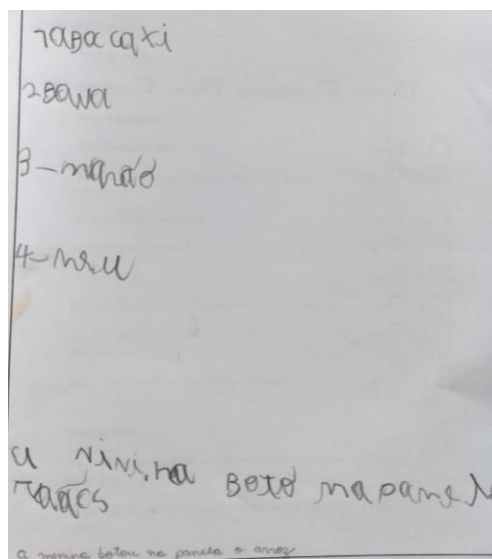 1 ABACAXI
2 BANA
3 - mamão
4 - meu
a ninina Boto na panel
a menina botou na panela o arroz